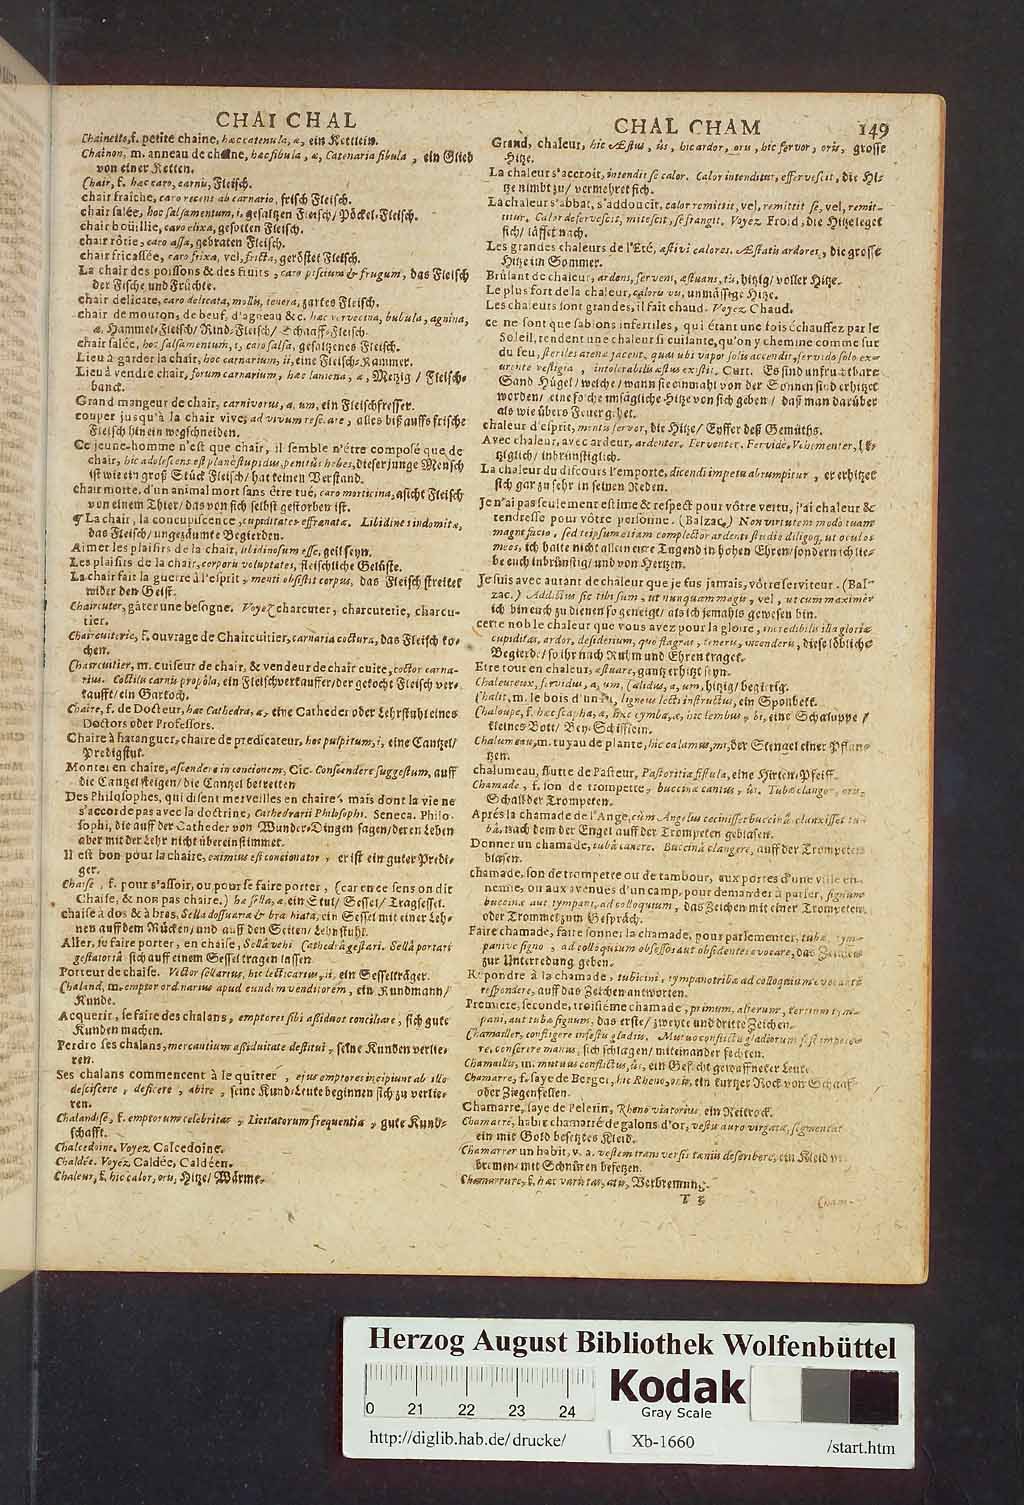 CHAI CHAL
Chainette, f. petite chaine, hæc catenula, æ, ein Kettlein.
Chainon, m. anneau de chaîne, hæc fibula, æ, Catenaria fibula, ein Glied
von einer Ketten.
Chair, f. hæc caro, carnis, Fleisch.
chair fraiche, caro recens ab carnario, frisch Fleisch.
chair salée, hoc salsamentum, i, gesaltzen Fleisch/ Pöckel-Fleisch.
chair boüillie, caro elixa, gesotten Fleisch.
chair rôtie, caro assa, gebraten Fleisch.
chair fricassée, caro frixa, vel, fricta, geröstet Fleisch.
La chair des poissons & des fruits, caro piscium & frugum, das Fleisch
der Fische und Früchte.
chair delicate, caro delicata, mollis, tenera, zartes Fleisch.
chair de mouton, de beuf, d'agneau &c. hæc vervecina, bubula, agnina,
æ. Hammel-Fleisch/ Rind-Fleisch/ Schaaff-Fleisch.
chair salée, hoc salsamentum, i, caro salsa, gesaltzenes Fleisch.
Lieu à garder la chair, hoc carnarium, ii, eine Fleisch-Kammer.
Lieu à vendre chair, forum carnarium, hæc laniena, æ, Metzig/ Fleisch-
banck.
Grand mangeur de chair, carnivorus, a, um, ein Fleischfresser.
couper jusqu'à la chair vive, ad vivum resecare, alles biß auffs frische
Fleisch hinein wegschneiden.
Ce jeune-homme n'est que chair, il semble n'étre composé que de
chair, hic adolescens est planè stupidus, penitùs hebes, dieser junge Mensch
ist wie ein groß Stück Fleisch/ hat keinen Verstand.
chair morte, d'un animal mort sans étre tué, caro morticina, asicht Fleisch
von einem Thier/ das von sich selbst gestorben ist.
¶ La chair, la concupiscence, cupiditates effrenatæ. Libidines indomitæ,
das Fleisch/ ungezäumte Begierden.
Aimer les plaisirs de la chair, libidinosum esse, geil seyn.
Les plaisirs de la chair, corporis voluptates, fleischliche Gelüste.
La chair fait la guerre à l'esprit, menti obsistit corpus, das Fleisch streitet
wider den Geist.
Chaircuter, gâter une besogne. Voyez charcuter, charcuterie, charcu-
tier.
Chaircuiterie, f. ouvrage de Chaircuitier, carnaria coctura, das Fleisch ko-
chen.
Chaircuitier, m. cuiseur de chair, & vendeur de chair cuite, coctor carna-
rius. Coctilis carnis propôla, ein Fleischverkauffer/ der gekocht Fleisch ver-
kaufft/ ein Garkoch.
Chaire, f. de Docteur, hæc Cathedra, æ, eine Catheder oder Lehrstuhl eines
Doctors oder Professors.
Chaire à haranguer, chaire de predicateur, hoc pulpitum, i, eine Cantzel/
Predigstul.
Monter en chaire, ascendere in concionem, Cic. Conscendere suggestum, auff
die Cantzel steigen/ die Cantzel betretten
Des Philosophes, qui disent merveilles en chaire, mais dont la vie ne
s'accorde pas avec la doctrine, Cathedrarii Philosophi. Seneca. Philo-
sophi, die auff der Catheder von Wunder-Dingen sagen/ deren Leben
aber mit der Lehr nicht übereinstimmet.
Il est bon pour la chaire, eximius est concionator, er ist ein guter Predi-
ger.
Chaise, f. pour s'assoir, ou pour se faire porter, (car en ce sens on dit
Chaise, & non pas chaire.) hæc sella, æ, ein Stul/ Sessel/ Tragsessel.
chaise à dos & à bras, Sella dossuaria & brachiata, ein Sessel mit einer Leh-
nen auff dem Rücken/ und auff den Seiten/ Lehnstuhl.
Aller, se faire porter, en chaise, Sellâ vehi. Cathedrâ gestari. Sellâ portari
gestatoriâ sich auff einem Sessel tragen lassen
Porteur de chaise. Vector sellarius, hic lecticarius, ii, ein Sesselträger.
Chaland, m. emptor ordinarius apud eundem venditorem, ein Kundmann/
Kunde.
Acquerir, se faire des chalans, emptores sibi assiduos conciliare, sich gute
Kunden machen.
Perdre ses chalans, mercantium assiduitate destitui, seine Kunden verlie-
ren.
Ses chalans commencent à le quitter, ejus emptores incipiunt ab illo
desciscere, desicere, abire, seine Kund-Leute beginnen sich zu verlie-
ren.
Chalandise, f. emptorum celebritas, Licitatorum frequentia, gute Kund-
schafft.
Chalcedoine. Voyez Calcedoine.
Chaldée. Voyez Caldée, Caldéen.
Chaleur, f. hic calor, oris, Hitze/ Wärme.
CHAL CHAM 149
Grand, chaleur, hic Æstus, ûs, hic ardor, oris, hic fervor, oris, grosse
Hitze.
La chaleur s'accroit, intendit se calor. Calor intenditur, effervescit, die Hi-
tze nimbt zu/ vermehret sich.
La chaleur s'abbat, s'addoucît, calor remittit, vel, remittit se, vel, remit-
titur. Calor defervescit, mitescit, se frangit. Voyez Froid, die Hitze leget
sich/ lässet nach.
Les grandes chaleurs de l'Eté, æstivi calores. Æstatis ardores, die grosse
Hitze im Sommer.
Brûlant de chaleur, ardens, fervens, æstuans, tis, hitzig/ voller Hitze.
Le plus fort de la chaleur, caloris vis, unmässige Hitze.
Les chaleurs sont grandes, il fait chaud. Voyez Chaud.
ce ne sont que sablons infertiles, qui étant une fois échauffez par le
Soleil, rendent une chaleur si cuisante, qu'on y chemine comme sur
du feu, steriles arenæ jacent, quas ubi vapor solis accendit, fervido solo ex-
urente vestigia, intolerabilis æstus existit. Curt. Es sind unfruchtbare
Sand Hügel/ welche/ wann sie einmahl von der Sonnen sind erhitzet
worden/ eine solche unsägliche Hitze von sich geben/ daß man darüber
als wie übers Feuer gehet.
chaleur d'esprit, mentis fervor, die Hitze/ Eyffer deß Gemüths.
Avec chaleur, avec ardeur, ardenter. Ferventer. Fervidè. Vehementer, hi-
tziglich/ inbrünstiglich.
La chaleur du discours l'emporte, dicendi impetu abrumpitur, er erhitzet
sich gar zu sehr in seinen Reden.
Je n'ai pas seulement estime & respect pour vôtre vertu, j'ai chaleur &
tendresse pour vôtre personne. (Balzac) Non virtutem modo tuam
magnifacio, sed teipsum etiam complector ardenti studio diligoq, ut oculos
meos, ich halte nicht allein eure Tugend in hohen Ehren/ sondern ich lie-
be euch inbrünstig/ und von Hertzen.
Je suis avec autant de chaleur que je fus jamais, vôtre serviteur. (Bal-
zac.) Addictus sic tibi sum, ut nunquam magis, vel, ut cum maximè,
ich bin euch zu dienen so geneigt/ als ich jemahls gewesen bin.
cette noble chaleur que vous avez pour la gloire, incredibilis illa gloriæ
cupiditas, ardor, desiderium, quo flagras, teneris, incenderis, diese löbliche
Begierde/ so ihr nach Ruhm und Ehren traget.
Etre tout en chaleur, æstuare, gantz erhitzt seyn.
Chaleureux, fervidus, a, um, Calidus, a, um, hitzig/ begierig.
Chalit, m. le bois d'un lit, ligneus lecti instructus, ein Sponbett.
Chaloupe, f. hæc scapha, æ, hæc cymba, æ, hic lembus, bi, eine Schaluppe/
kleines Bott/ Bey-Schifflein.
Chalumeau, m. tuyau de plante, hic calamus, mi, der Stengel einer Pflan-
tzen.
chalumeau, flutte de Pasteur, Pastoritia fistula, eine Hirten-Pfeiff.
Chamade, f. son de trompette, buccinæ cantus, ûs. Tubæ clangor, oris,
Schall der Trompeten.
Aprés la chamade de l'Ange, cùm Angelus cecinisset buccinâ, clanxisset tu-
bâ, nach dem der Engel auff der Trompeten geblasen.
Donner un chamade, tubâ canere. Buccinâ clangere, auff der Trompeten
blasen.
chamade, son de trompette ou de tambour, aux portes d'une ville en-
nemie, ou aux avenues d'un camp, pour demander à parler, signum
buccinæ aut tympani, ad colloquium, das Zeichen mit einer Trompeten
oder Trommel zum Gespräch.
Faire chamade, faire sonner la chamade, pour parlementer, tubæ, tym-
panive signo, ad colloquium obsessos aut obsidentes evocare, das Zeichen
zur Unterredung geben.
Répondre à la chamade, tubicini, tympanotribæ ad colloquium evocanti
respondere, auff das Zeichen antworten.
Premiere, seconde, troisiéme chamade, primum, alterum, tertium tym-
pani, aut tubæ signum, das erste/ zweyte und dritte Zeichen.
Chamailler, confligere infestis gladiis. Mutuo conflictu gladiorum sese impete-
re, conserere manus, sich schlagen/ miteinander fechten.
Chamaillis, m. mutuus conflictus, ûs, ein Gefecht gewaffneter Leute
Chamarre, f. saye de Berger, hic Rheno, onis, ein kurtzer Rock von Schaaf-
oder Ziegenfellen.
Chamarre, saye de Pelerin, Rheno viatorius, ein Reitrock.
Chamarré, habit chamarré de galons d'or, vestis auro virgata, segmentata
ein mit Gold besetztes Kleid.
Chamarrer un habit, v. a. vestem transversis tæniis describere, ein Kleid ver-
bremen/ mit Schnüren besetzen.
Chamarrure, f. hæc varietas, atis, Verbremung.
T 3 Cham-
Herzog August Bibliothek Wolfenbüttel
0 21 22 23 24
Kodak
Gray Scale
http://diglib.hab.de/drucke/ Xb-1660 /start.htm